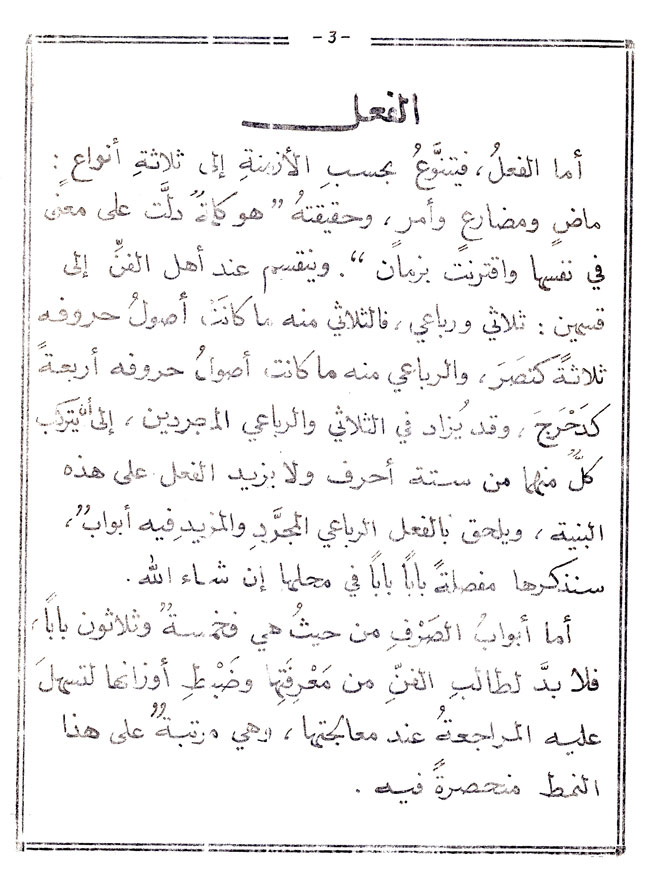 -3-
الفعل
أما الفعلُ، فيتنوَّعُ بحسبِ الأزمنةِ إلى ثلاثةِ أنواعٍ :
ماضٍ ومضارعٍ وأمر، وحقيقتهُ "هو كلمةٌ دلَّت على معنًى
في نفسها واقترنت بزمان". وينقسم عند أهل الفنِّ إلى
قسمين : ثلاثي ورباعي، فالثلاثي منه ما كانَتْ أصولُ حروفه
ثلاثةً كنَصَرَ، والرباعي منه ما كانت أصولُ حروفه أربعةً
كدَحْرَجَ، وقد يُزاد في الثلاثي والرباعي المجردين، إلى أن يتركب
كلٌّ منهما من ستة أحرف ولا يزيد الفعل على هذه
البنية، ويلحق بالفعل الرباعي المجرَّدِ والمزيدِ فيه أبوابٌ،
سنذكرها مفصلةً بابًا بابًا في محلها إن شاء الله.
أما أبوابُ الصَرْفِ من حيثُ هي فخمسةٌ وثلاثون بابًا،
فلا بدَّ لطالبِ الفنِّ من مَعْرِفَتِها وضَبْطِ أوزانها لتسهلَ
عليه المراجعةُ عند معالجتها، وهي مرتبةٌ على هذا
النمط منحصرةً فيه .